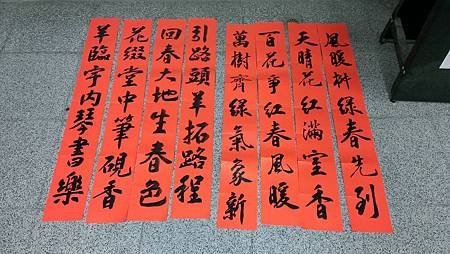 風暖柳綠春先到
天晴花紅滿室香
百花爭紅春風暖
萬樹齊綠氣象新
引路頭羊拓路程
回春大地生春色
花綴堂中筆硯香
羊臨宇內琴書樂